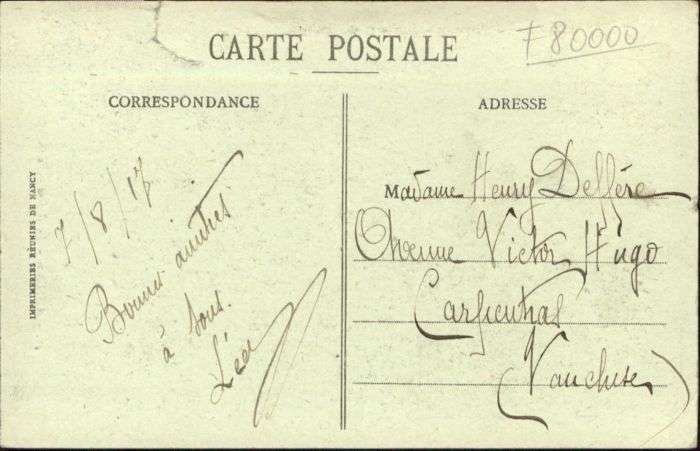 CARTE POSTALE
F80000
CORRESPONDANCE
ADRESSE
7/8/17
Bonnes amitiés
à tous.
Léon
Madame Henry Delfère
Avenue Victor Hugo
Carpentras
(Vaucluse)
IMPRIMERIES RÉUNIES DE NANCY